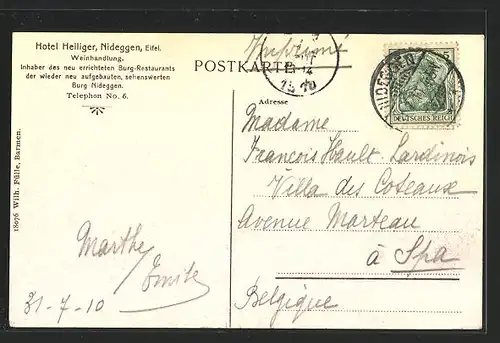 Hotel Heiliger, Nideggen, Eifel.
Weinhandlung.
Inhaber des neu errichteten Burg-Restaurants
der wieder neu aufgebauten, sehenswerten
Burg Nideggen.
Telephon No. 6.
Imprimé
POSTKARTE
Adresse
5
DEUTSCHES REICH
NIDEGGEN
Madame
François Hault-Lardinois
Villa des Coteaux
Avenue Marteau
à Spa
Belgique
Marthe
Emile
31-7-10
18076 Wilh. Fülle, Barmen.